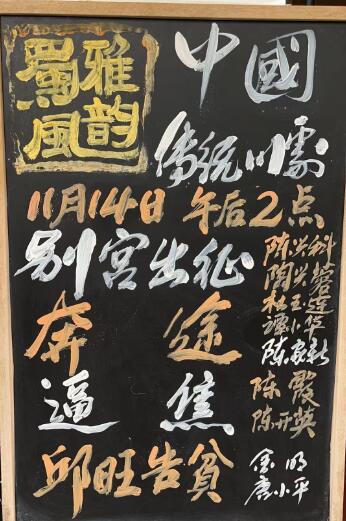 蜀風雅韵
中國
傳統川劇
11月14日 午后2点
别宫出征 陈兴科
陶兴容
杜玉莲
谭小华
奔途 陈家新
逼焦 陈殿
陈开英
邱旺告贫 金明
唐小平